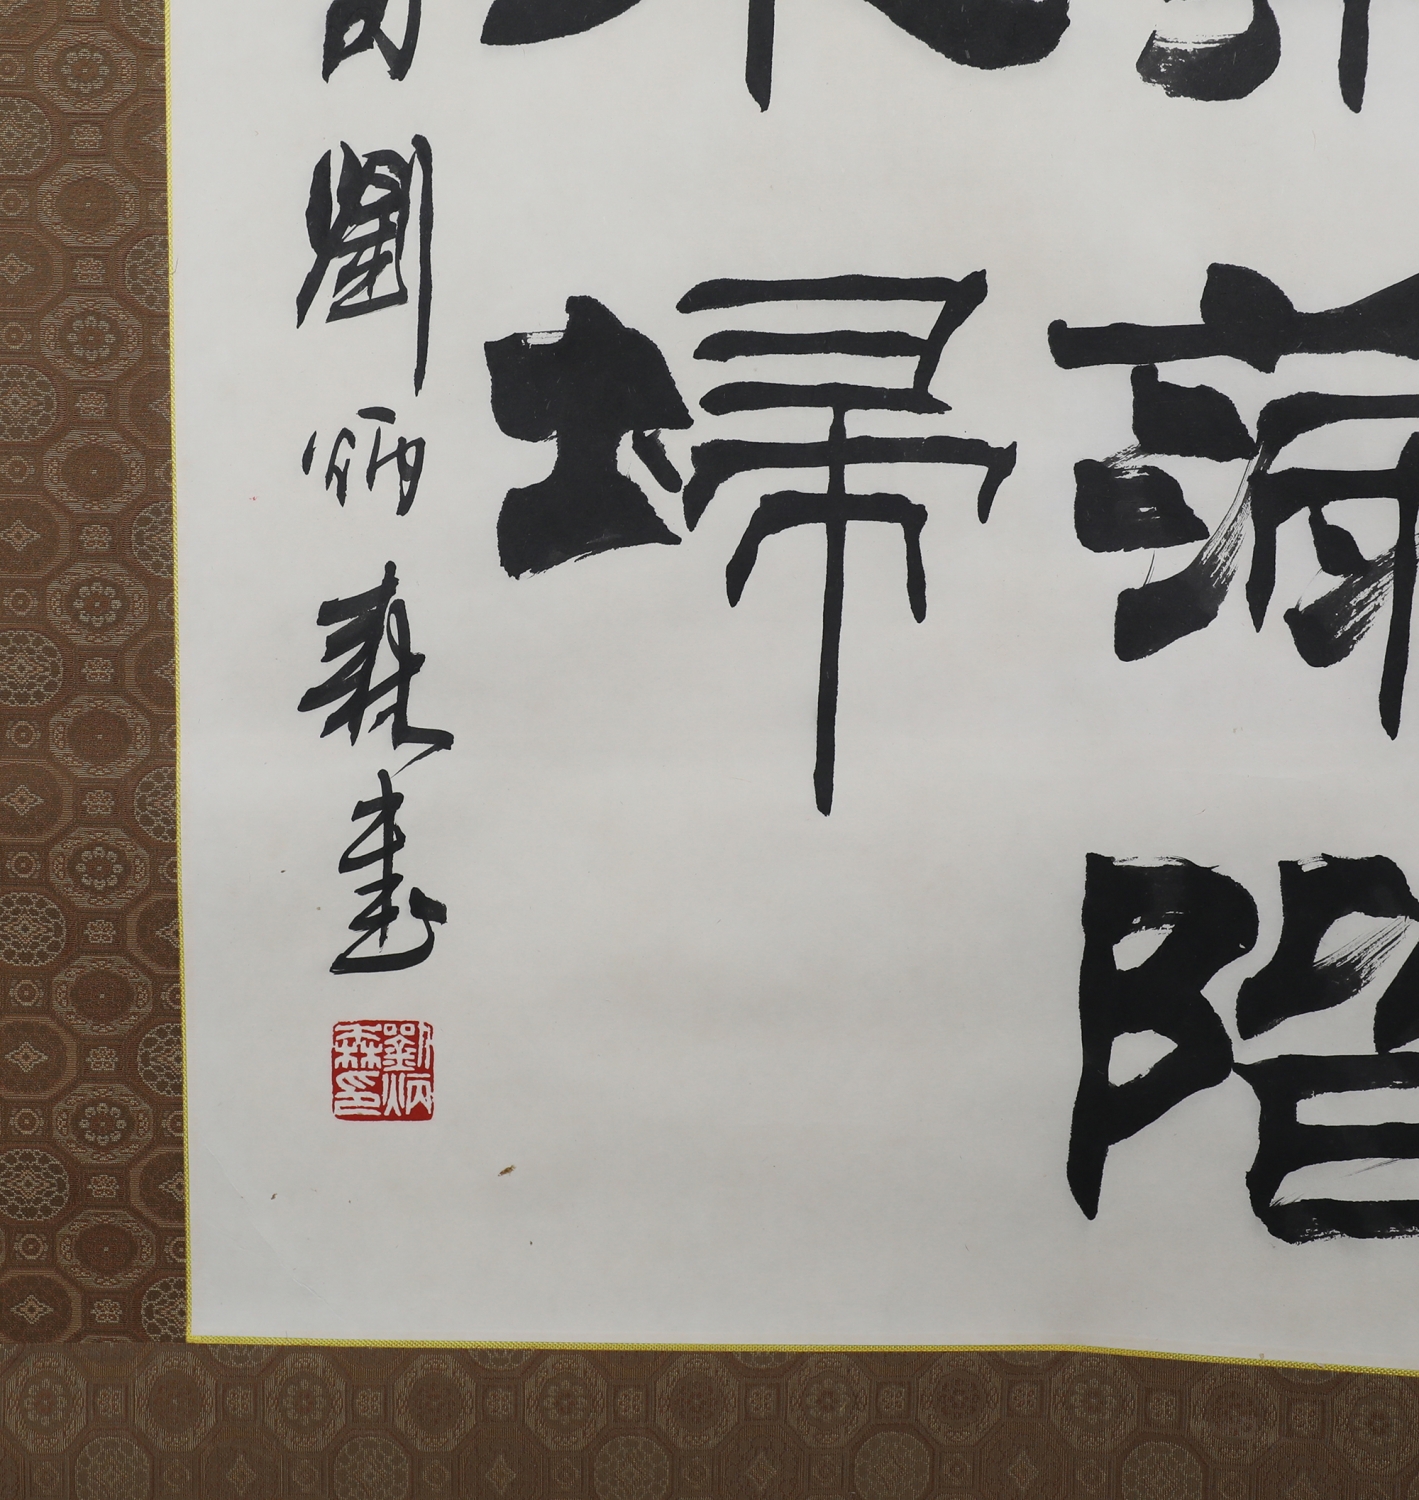 滿階
埽
劉炳森書
劉炳森印